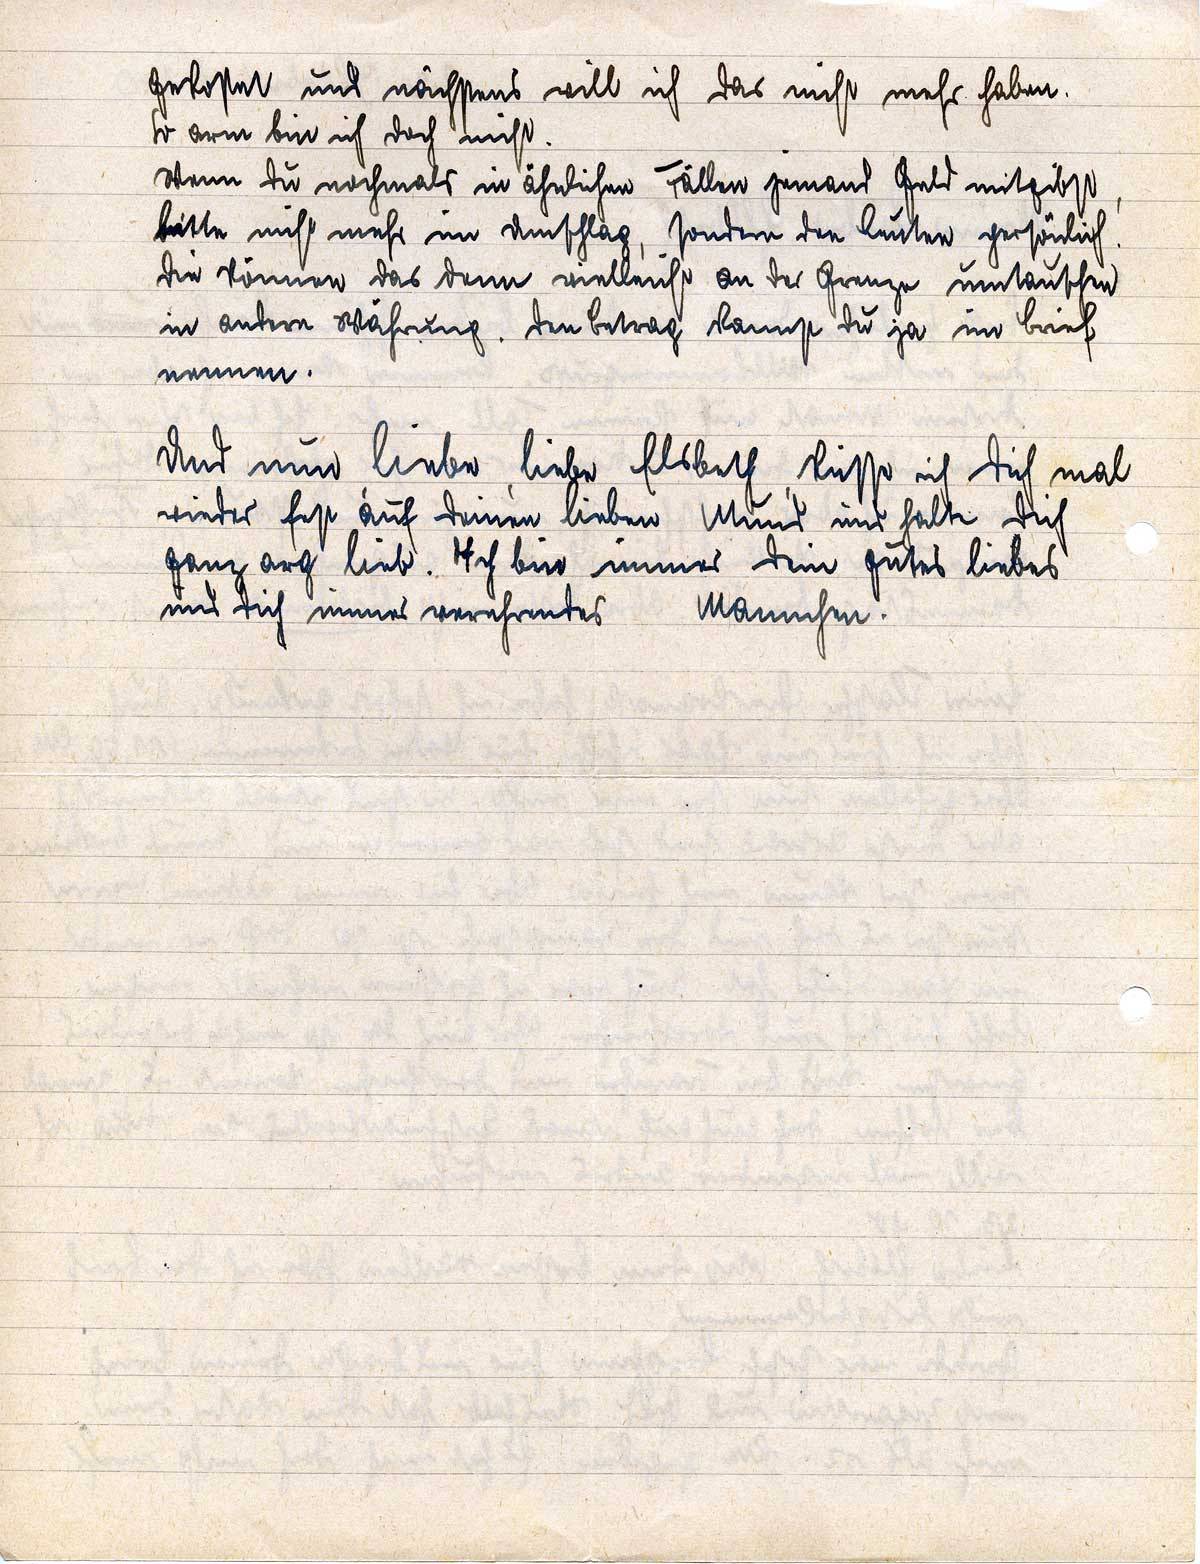 gekostet und nächstens will ich das nicht mehr haben.
So arm bin ich doch nicht.
Wenn du nochmals in ähnlichen Fällen jemand Geld mitgibst,
bitte nicht mehr im Umschlag, sondern den Leuten persönlich.
Die können das dann vielleicht an der Grenze umtauschen
in andere Währung. Den Betrag kannst du ja im Brief
nennen.
Und nun liebe, liebe Elsbeth, küsse ich dich mal
wieder fest auf deinen lieben Mund und halte dich
ganz arg lieb. Ich bin immer dein gutes liebes
und dich immer verehrendes Mannchen.